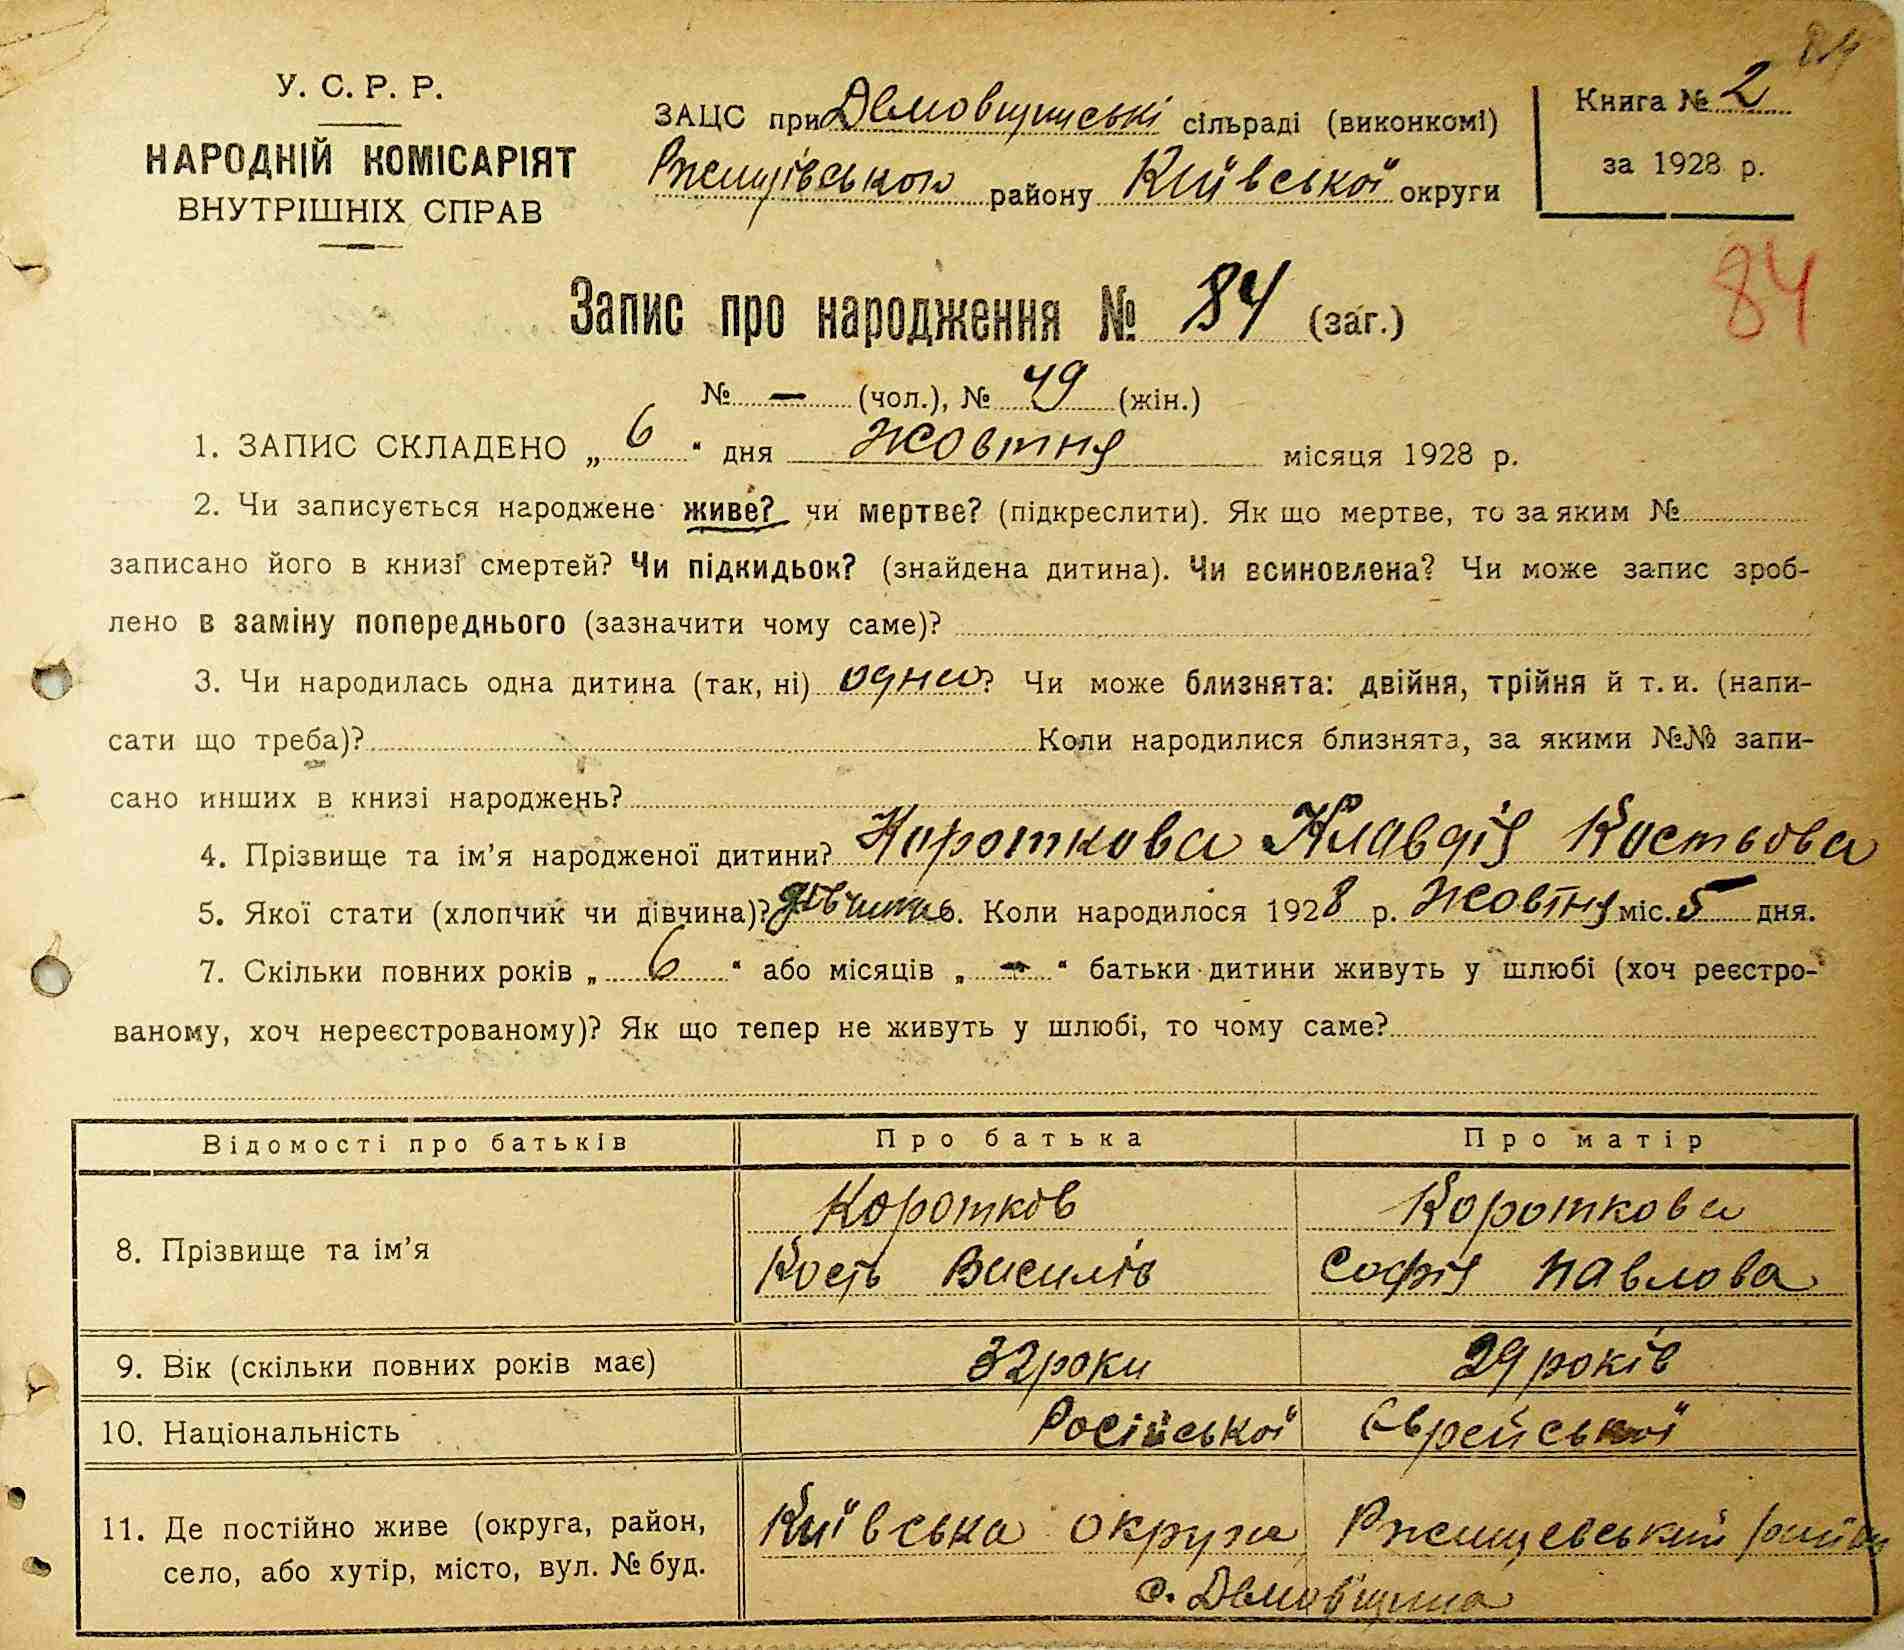 84
У. С. Р. Р.
НАРОДНІЙ КОМІСАРІЯТ
ВНУТРІШНІХ СПРАВ
ЗАЦС при Демовщинські сільраді (виконкомі)
Ржищівського району Київської округи
Книга № 2
за 1928 р.
84
Запис про народження № 84 (заг.)
№ — (чол.), № 49 (жін.)
1. ЗАПИС СКЛАДЕНО „ 6 “ дня жовтня місяця 1928 р.
2. Чи записується народжене живе? чи мертве? (підкреслити). Як що мертве, то за яким №
записано його в книзі смертей? Чи підкидьок? (знайдена дитина). Чи всиновлена? Чи може запис зроб-
лено в заміну попереднього (зазначити чому саме)?
3. Чи народилась одна дитина (так, ні) одна? Чи може близнята: двійня, трійня й т. и. (напи-
сати що треба)? Коли народилися близнята, за якими №№ запи-
сано инших в книзі народжень?
4. Прізвище та ім’я народженої дитини? Короткова Клавдія Костьова
5. Якої стати (хлопчик чи дівчина)? дівчина 6. Коли народилося 1928 р. жовтня міс. 5 дня.
7. Скільки повних років „ 6 “ або місяців „ — “ батьки дитини живуть у шлюбі (хоч реєстро-
ваному, хоч нереєстрованому)? Як що тепер не живуть у шлюбі, то чому саме?
Відомості про батьків Про батька Про матір
8. Прізвище та ім’я
Коротков
Кость Василів
Короткова
Софія Павлова
9. Вік (скільки повних років має) 32 роки 29 років
10. Національність Російської Єврейської
11. Де постійно живе (округа, район,
село, або хутір, місто, вул. № буд.
Київська округа Ржищевський район
с. Демовщина